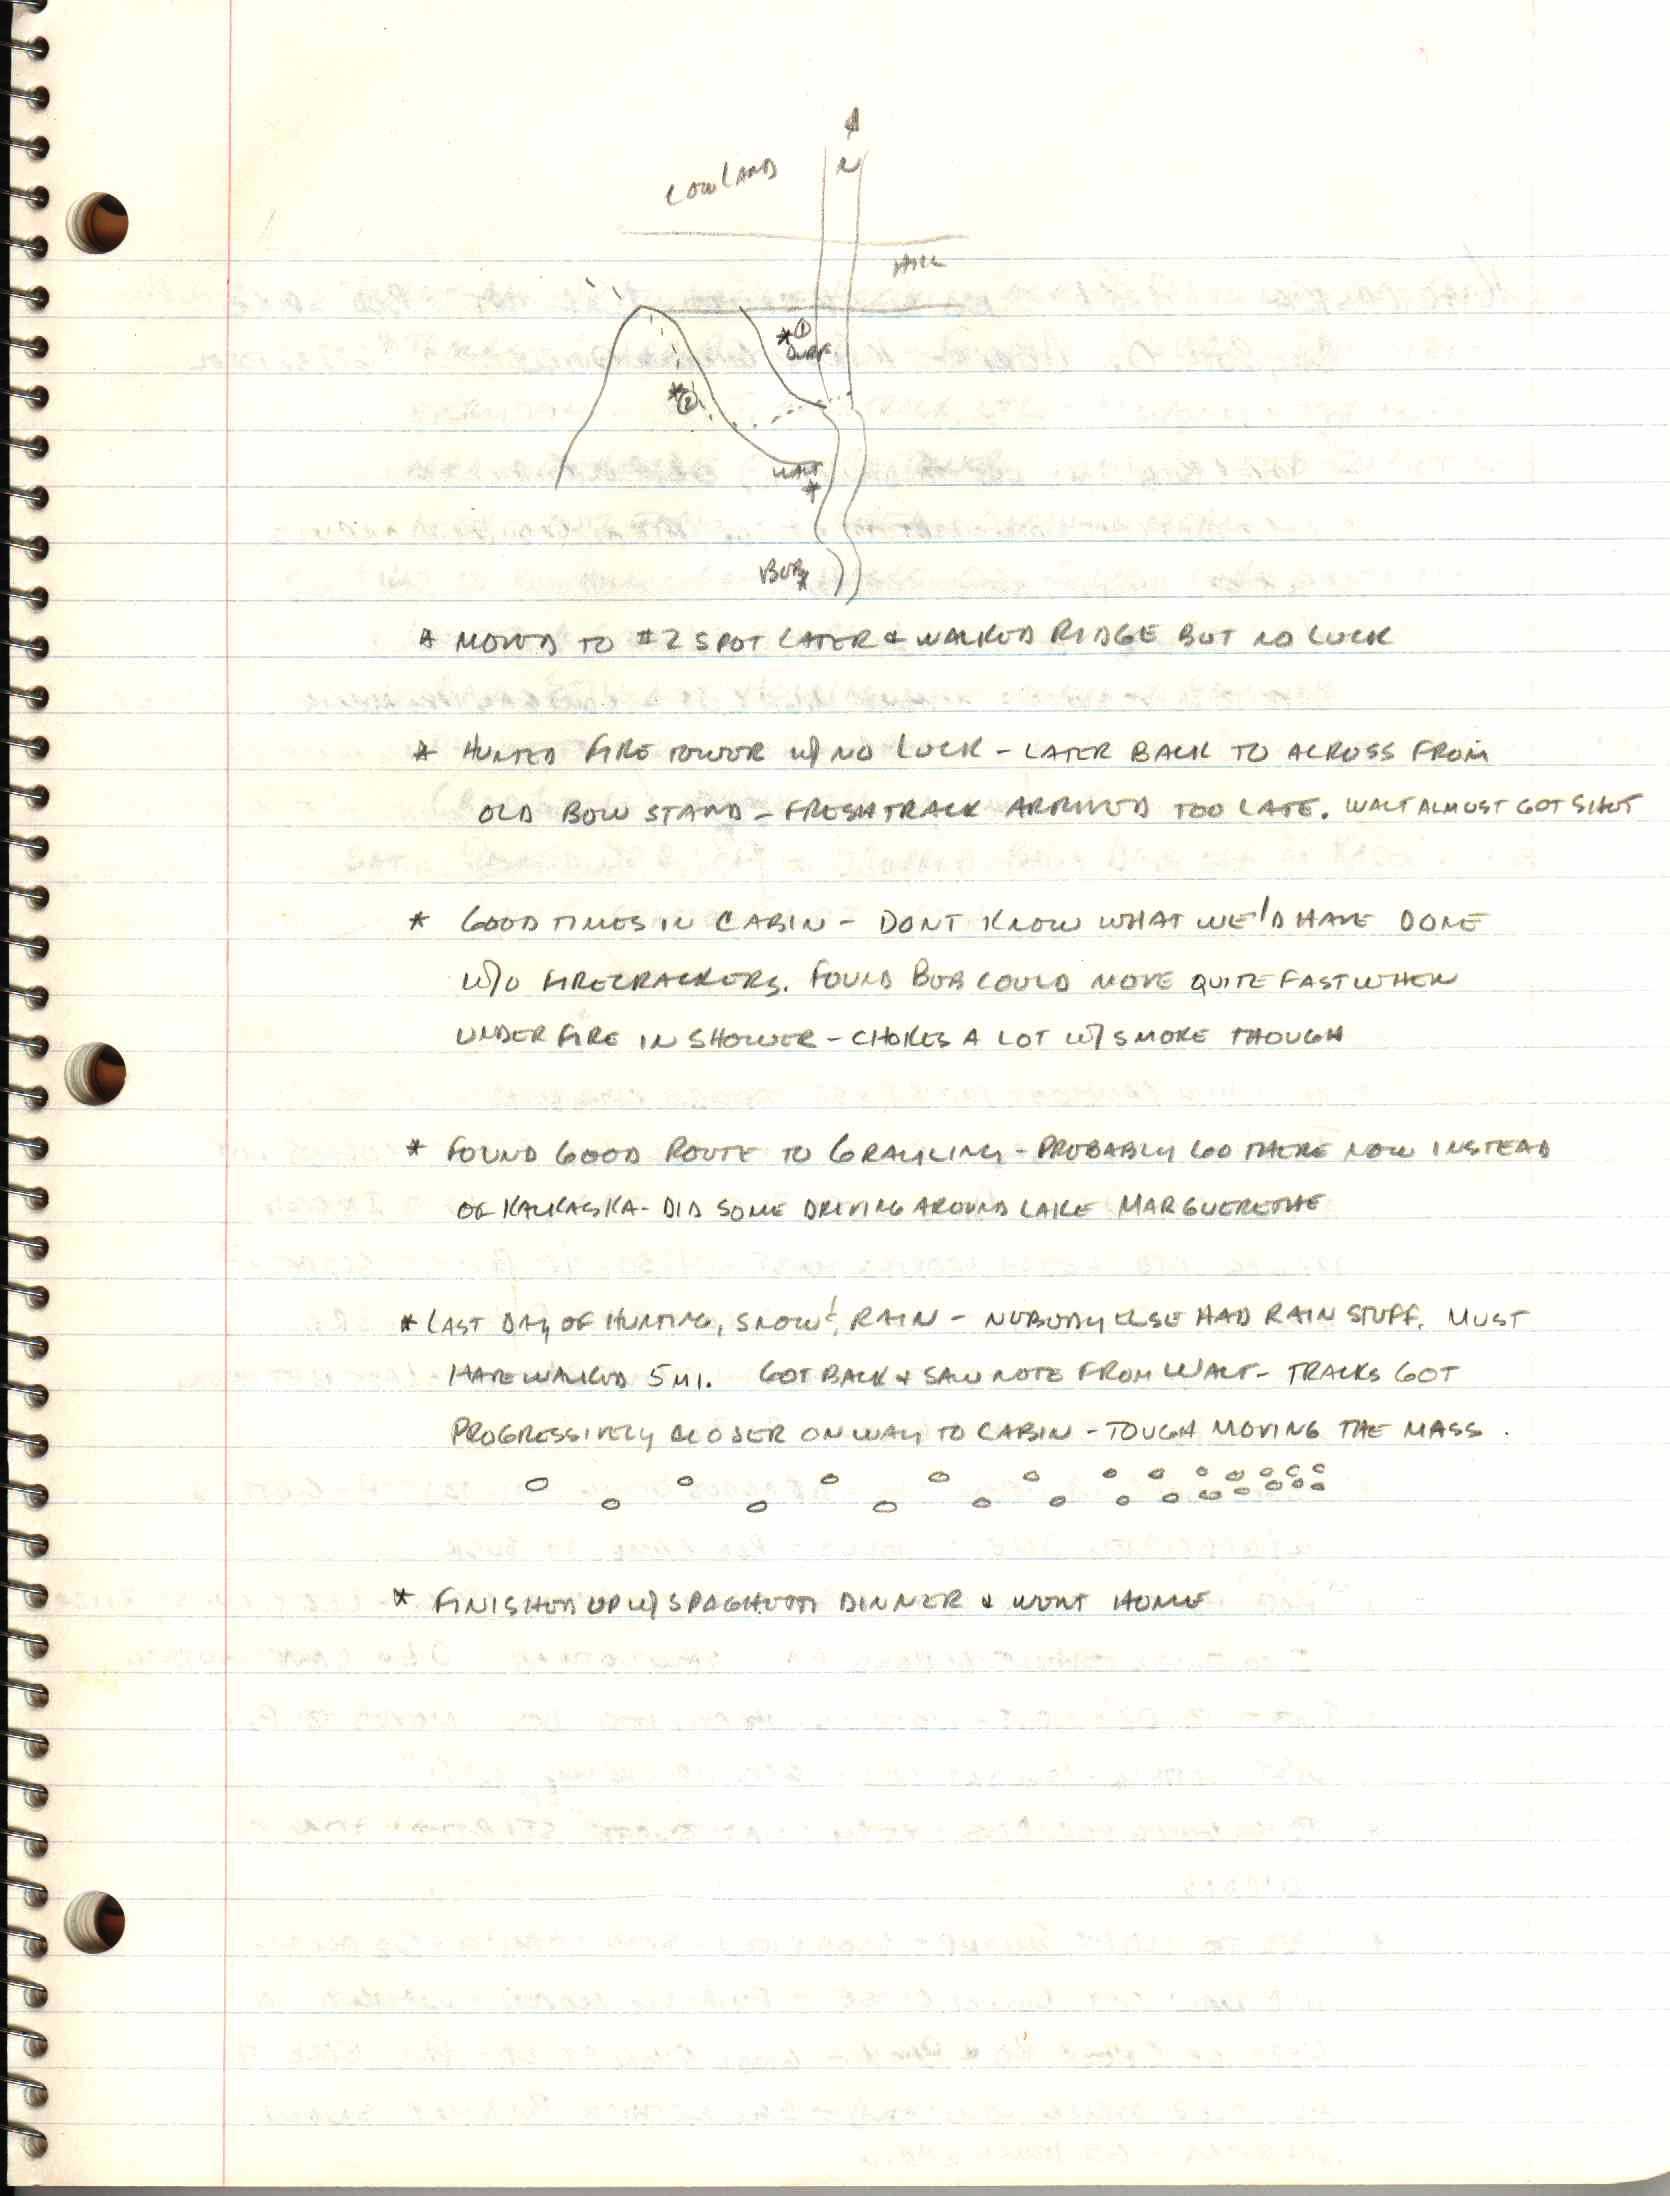 N
LOWLAND
HILL
* ①
DURF
* ②
WALT
*
BOB
*
* MOVED TO #2 SPOT LATER & WALKED RIDGE BUT NO LUCK
* HUNTED FIRE TOWER W/ NO LUCK - LATER BACK TO ACROSS FROM
OLD BOW STAND - FRESH TRACK ARRIVED TOO LATE. WALT ALMOST GOT SHOT
* GOOD TIMES IN CABIN - DONT KNOW WHAT WE'D HAVE DONE
W/O FIRECRACKERS. FOUND BOB COULD MOVE QUITE FAST WHEN
UNDER FIRE IN SHOWER - CHOKES A LOT W/ SMOKE THOUGH
* FOUND GOOD ROUTE TO GRAYLING - PROBABLY GO THERE NOW INSTEAD
OF KALKASKA - DID SOME DRIVING AROUND LAKE MARGUERETHE
* LAST DAY OF HUNTING, SNOW & RAIN - NOBODY ELSE HAD RAIN STUFF. MUST
HAVE WALKED 5 MI. GOT BACK & SAW NOTE FROM WALT - TRACKS GOT
PROGRESSIVELY CLOSER ON WAY TO CABIN - TOUGH MOVING THE MASS.
* FINISHED UP W/ SPAGHETTI DINNER & WENT HOME